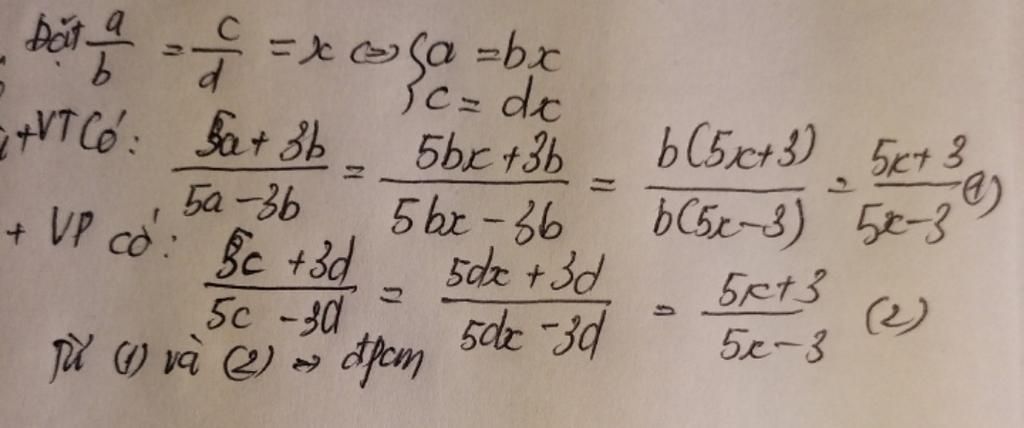 Đặt a/b = c/d = x ⇔ { a = bx
{ c = dx
+ VT Có: (5a + 3b)/(5a - 3b) = (5bx + 3b)/(5bx - 3b) = b(5x+3)/b(5x-3) = (5x+3)/(5x-3) (1)
+ VP có: (5c + 3d)/(5c - 3d) = (5dx + 3d)/(5dx - 3d) = (5x+3)/(5x-3) (2)
Từ (1) và (2) ⇒ đpcm